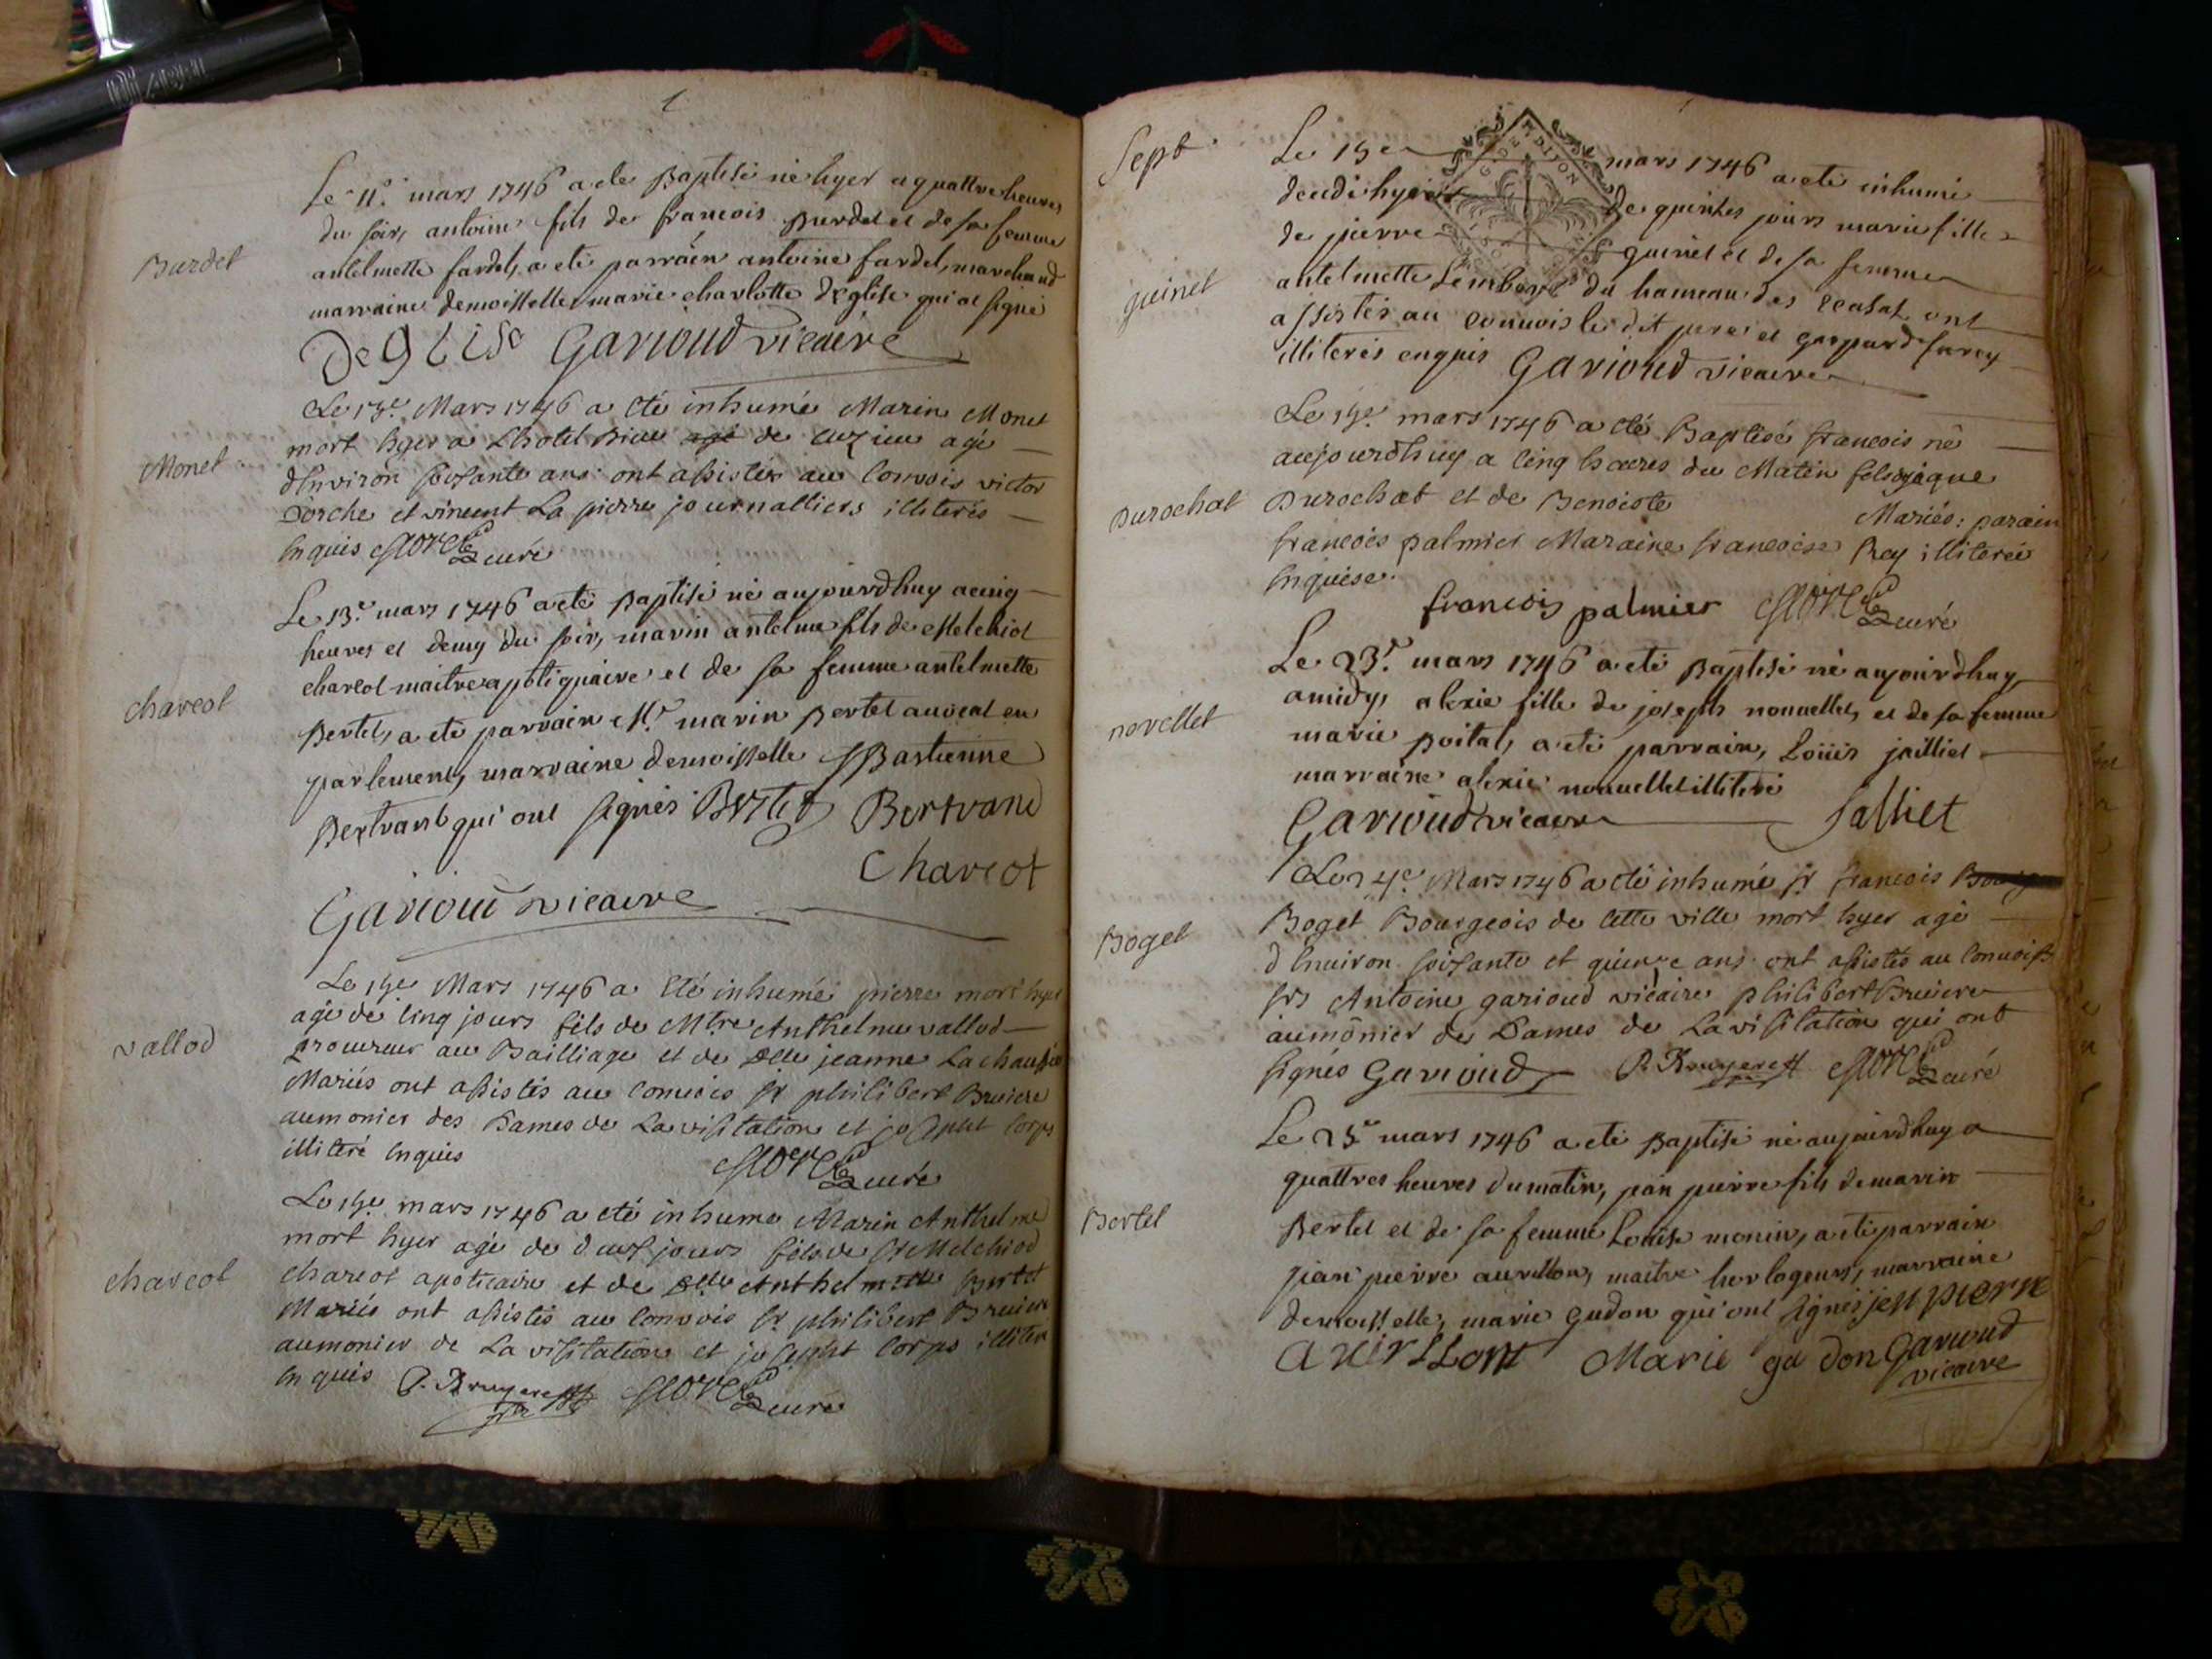 Burdet
Le 11e. mars 1746 a ete Baptisé né hyer a quattre heures
du soir, antoine fils de francois Burdet et de sa femme
antelmette fardel, a eté parrain antoine fardel, marchand
marraine demoisselle marie charlotte deglise qui a signé
DeGLiSe Garioud vicaire
Monet
Le 13e. Mars 1746 a eté inhumé Marin Monet
mort hyer a Lhotel Dieu agé de Cuzieu agé
dEnviron soixante ans ont assistés au Convois victor
Dorche et vincent La pierre journalliers illiterés
Enquis curé
Charcot
Le 13e. mars 1746 a eté Baptisé né aujourdhuy a cinq
heures et demy du soir, marin antelme fils de Melchiol
charcot maitre apotiquaire et de sa femme antelmette
Bertet, a eté parrain Mr. marin Bertet avocat en
parlement, marraine demoisselle Bastienne
Bertrand qui ont signés Bertet Bertrand
Charcot
Garioud vicaire
vallod
Le 15e Mars 1746 a Eté inhumé pierre mort hyer
agé de Cinq jours fils de Mtre Anthelme vallod
procureur au Bailliage et de Delle jeanne La chaussée
Mariés ont assistés au Convois sr philibert Bruiere
aumonier des Dames de La visitation et josepht Corps
illiteré Enquis curé
charcot
Le 15e. mars 1746 a eté inhumé Marin Anthelme
mort hyer agé de deux jours fils de sr Melchiod
charcot apoticaire et de Delle Anthelmette Bertet
Mariés ont assistés au Convois sr philibert Bruiere
aumonier de La visitation et josepht Corps illiteré
Enquis P. Bruyere curé
Sept
Le 19e mars 1746 a eté inhumé
decedé hyer de quinzes jours marie fille
guinet
de pierre guinet et de sa femme
antelmette Lembert du hameau des ont
assistés au convois le dit pere et gaspard furcy
illiterés enquis Garioud vicaire
Le 19e. mars 1746 a eté Baptisé francois né
aujourdhuy a Cinq heures du Matin fils de jaque
Durochat
Durochat et de Benoiste Mariés: parain
francois palmier Maraine francoise Rey illiterée
Enquise.
francois palmier curé
novellet
Le 23e. mars 1746 a eté Baptisé né aujourdhuy
a midy, alexie fille de joseph nouvellet, et de sa femme
marie Poital, a eté parrain, Loüis jailliet
marraine alexie nouvellet illiteré
Garioud vicaire Jalliet
Boget
Le 24e. Mars 1746 a eté inhumé sr francois
Boget Bourgeois de Cette ville mort hyer agé
d Environ soixante et quinze ans ont assistés au Convois
srs Antoine garioud vicaire philibert Bruiere
aumônier des Dames de La visitation qui ont
signés Garioud P. Bruyere curé
Bertet
Le 25e mars 1746 a eté Baptisé né aujourdhuy a
quattres heures du matin, jean pierre fils de marin
Bertet et de sa femme Louise monin, a eté parrain
jean pierre aurillon, maitre horlogeur, marraine
demoisselle, marie gudon qui ont signés jen pierre
aurillont Marie gudon Garioud
vicaire